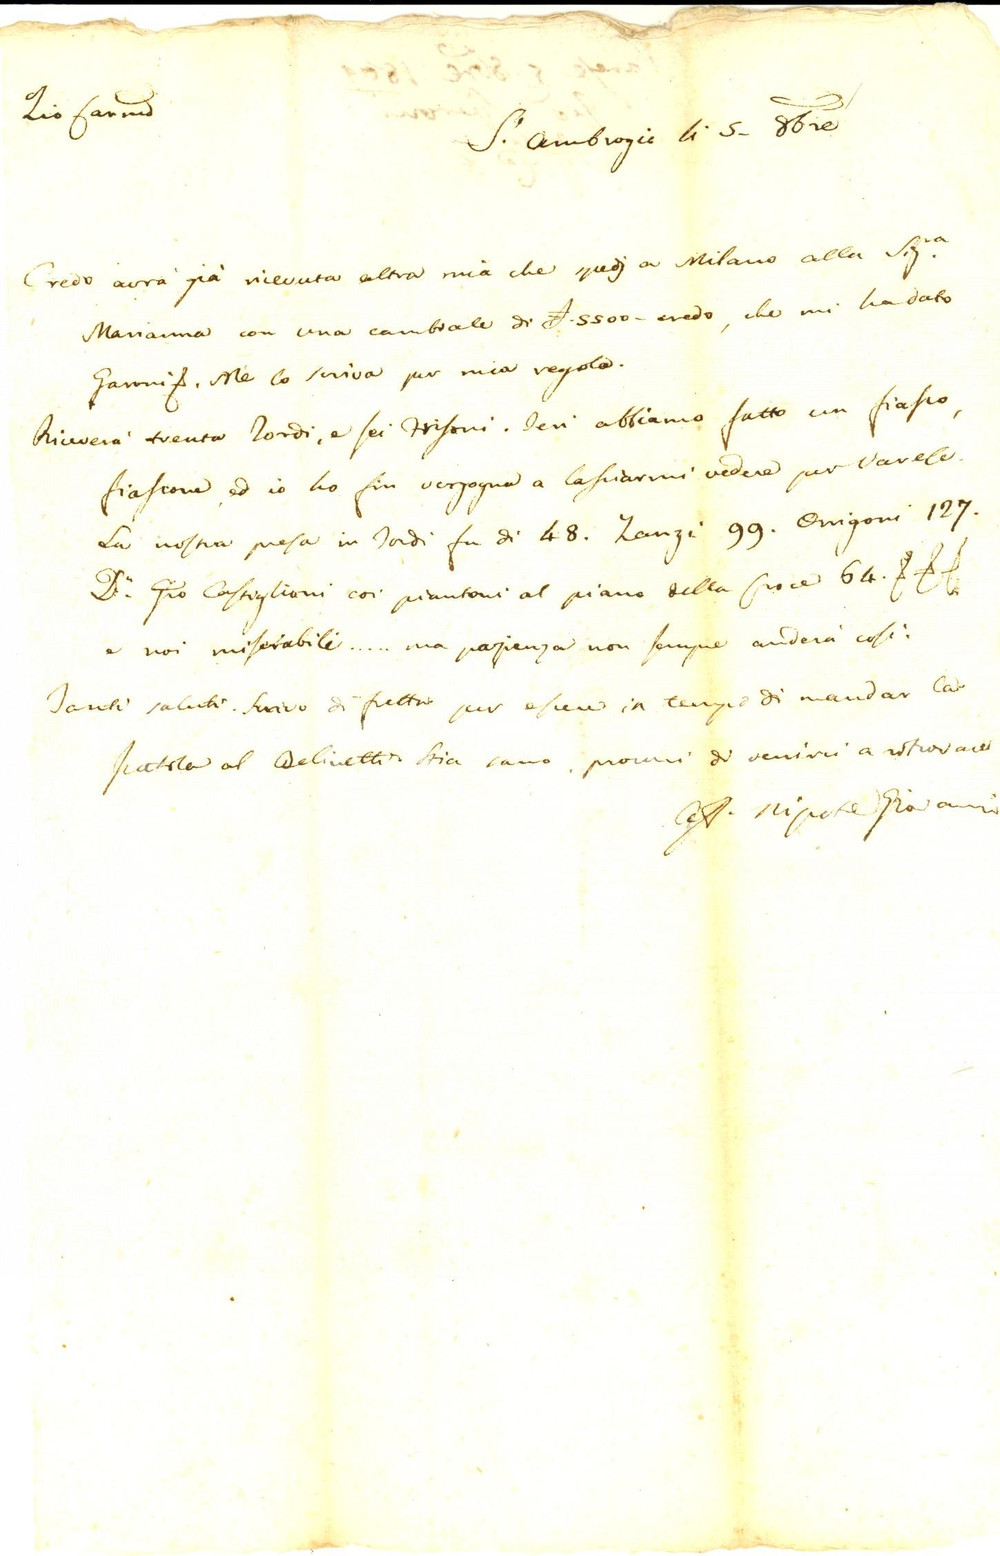 Zio Carmo
S. Ambrogio li 5 - 8bre
Credo avrà già ricevuta altra mia che spedj a Milano alla Sig.ra
Marianna con una cambiale di £ 5500 - credo, che mi ha dato
Garoni. Me lo scriva per mia regola.
Riceverà trenta Tordi, e sei Frisoni. Ieri abbiamo fatto un fiasco,
fiascone, ed io ho fin vergogna a lasciarmi vedere per Varese.
La nostra presa in Tordi fu di 48. Zanzi 99. Orrigoni 127.
Dn. Gio Castiglioni coi piantoni al piano della Croce 64.
e noi miserabili ..... ma pazienza non sempre anderà così.
Tanti saluti. Scrivo di fretta per essere in tempo di mandar la
scatola al Belinetti. Stia sano, procuri di venirci a ritrovare
Aff. Nipote Giovanni